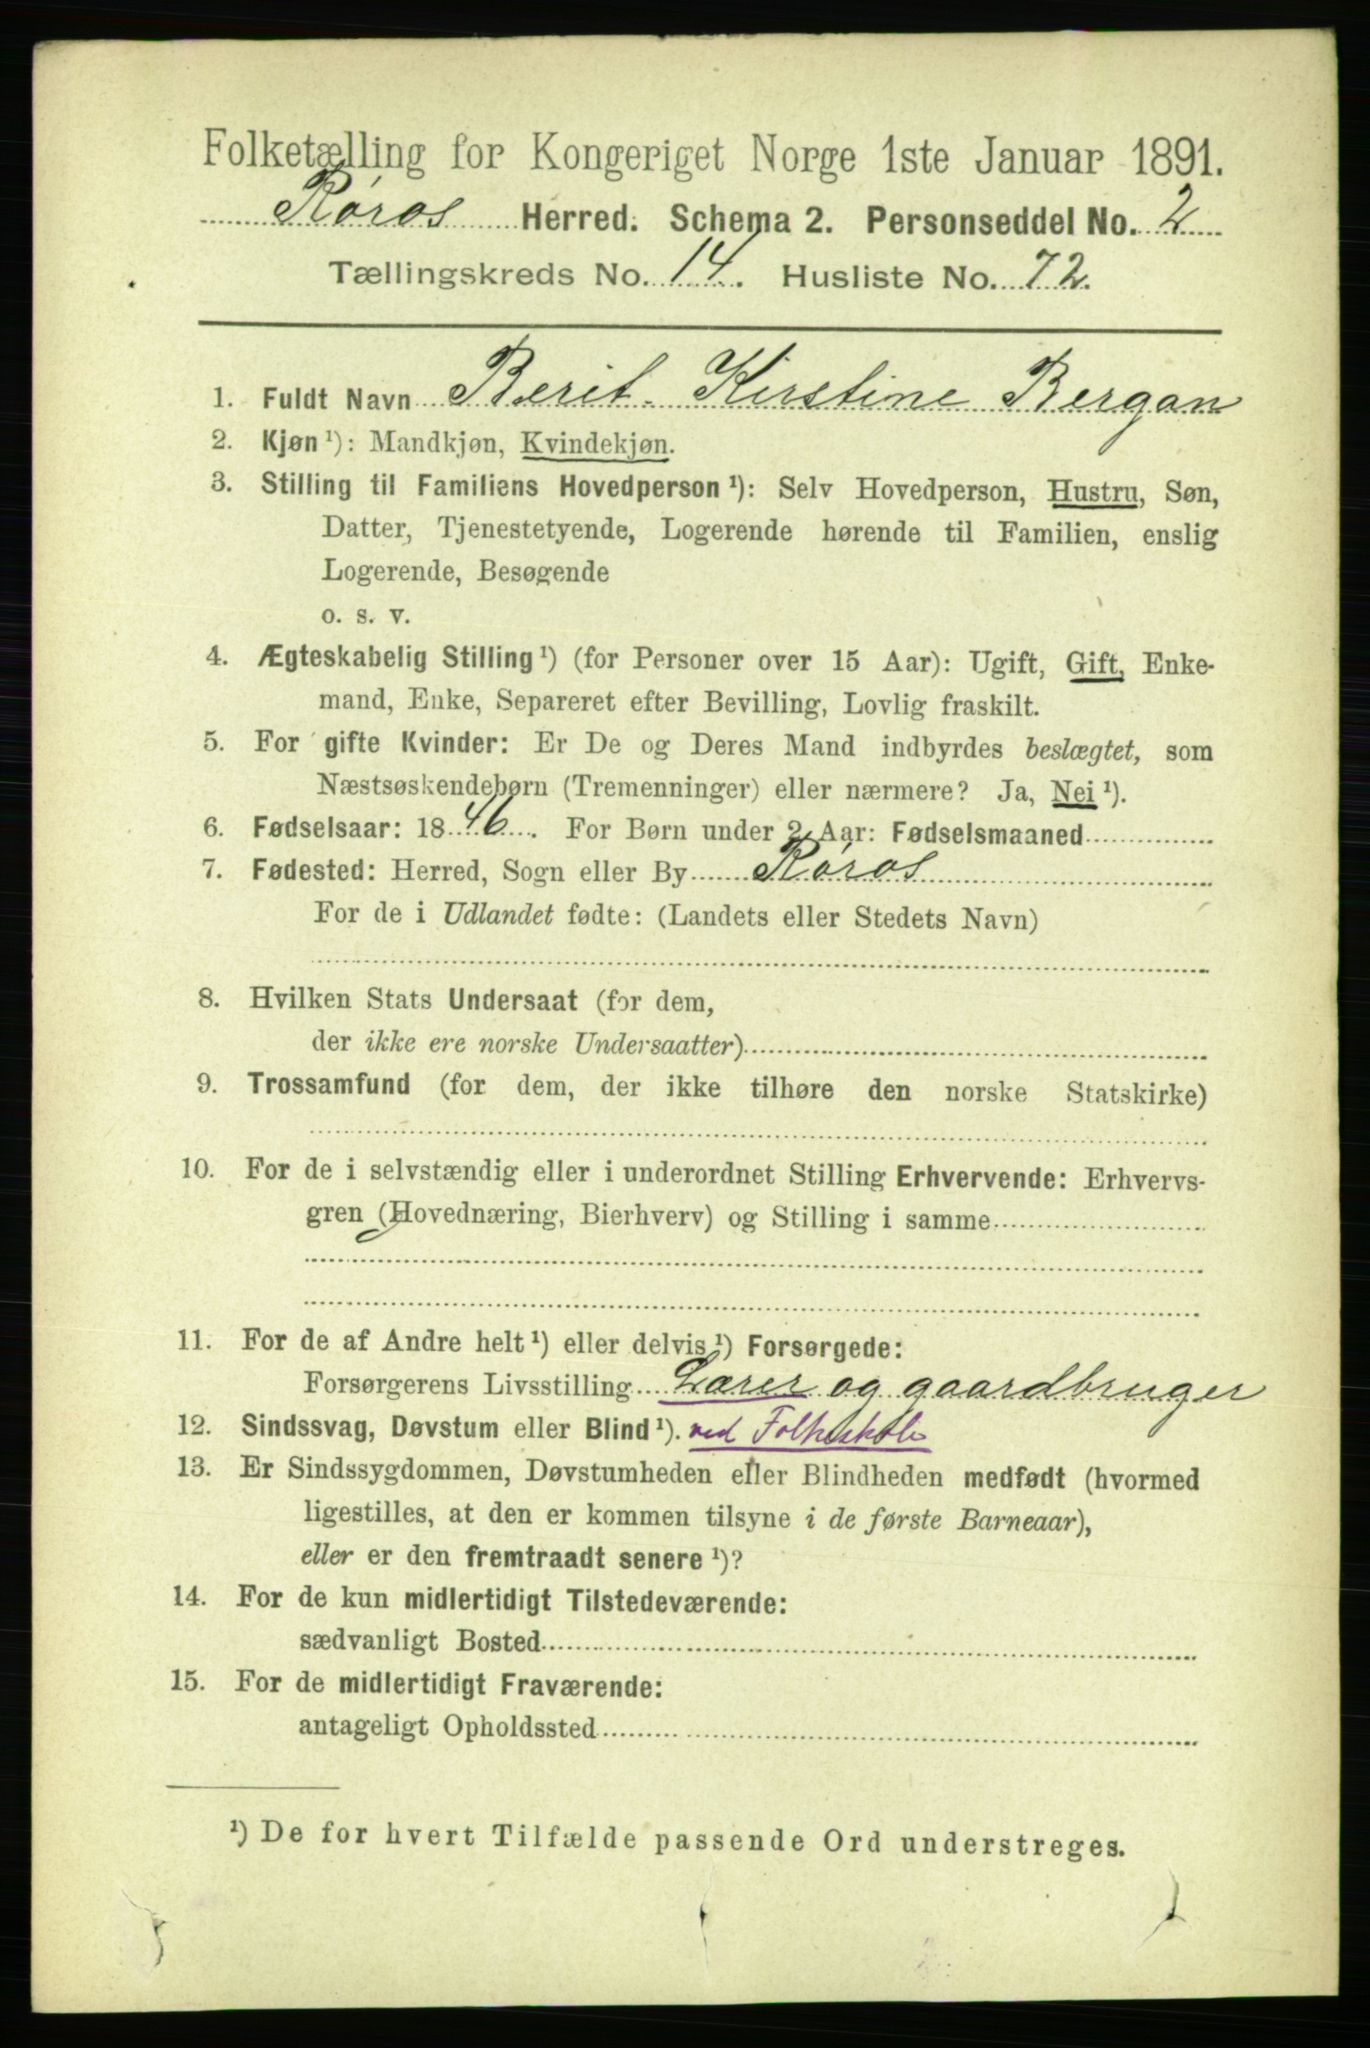 Folketælling for Kongeriget Norge 1ste Januar 1891.
Røros Herred. Schema 2. Personseddel No. 2
Tællingskreds No. 14. Husliste No. 72.
1. Fuldt Navn Berit Kirstine Bergan
2. Kjøn ¹): Mandkjøn, Kvindekjøn.
3. Stilling til Familiens Hovedperson ¹): Selv Hovedperson, Hustru, Søn,
Datter, Tjenestetyende, Logerende hørende til Familien, enslig
Logerende, Besøgende
o. s. v.
4. Ægteskabelig Stilling ¹) (for Personer over 15 Aar): Ugift, Gift, Enke-
mand, Enke, Separeret efter Bevilling, Lovlig fraskilt.
5. For gifte Kvinder: Er De og Deres Mand indbyrdes beslægtet, som
Næstsøskendebørn (Tremenninger) eller nærmere? Ja, Nei ¹).
6. Fødselsaar: 1846. For Børn under 2 Aar: Fødselsmaaned
7. Fødested: Herred, Sogn eller By Røros
For de i Udlandet fødte: (Landets eller Stedets Navn)
8. Hvilken Stats Undersaat (for dem,
der ikke ere norske Undersaatter)
9. Trossamfund (for dem, der ikke tilhøre den norske Statskirke)
10. For de i selvstændig eller i underordnet Stilling Erhvervende: Erhvervs-
gren (Hovednæring, Bierhverv) og Stilling i samme
11. For de af Andre helt ¹) eller delvis ¹) Forsørgede:
Forsørgerens Livsstilling Lærer og gaardbruger
12. Sindssvag, Døvstum eller Blind ¹). ved Folkeskole
13. Er Sindssygdommen, Døvstumheden eller Blindheden medfødt (hvormed
ligestilles, at den er kommen tilsyne i de første Barneaar),
eller er den fremtraadt senere ¹)?
14. For de kun midlertidigt Tilstedeværende:
sædvanligt Bosted
15. For de midlertidigt Fraværende:
antageligt Opholdssted
¹) De for hvert Tilfælde passende Ord understreges.